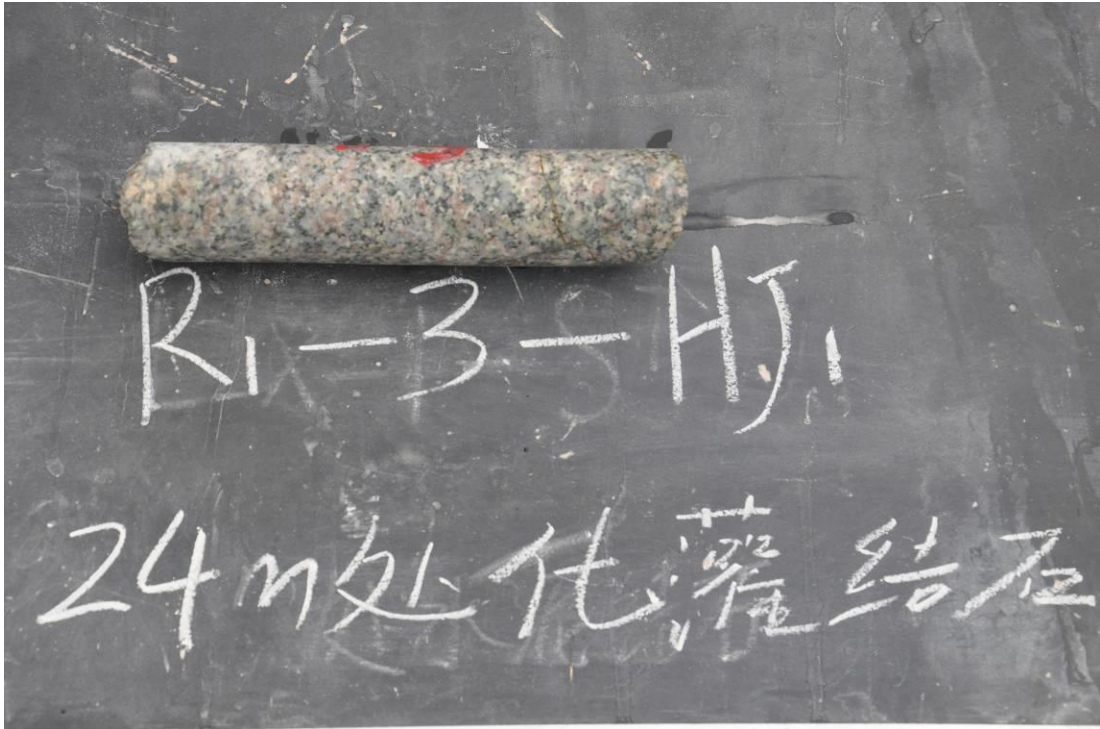 R1-3-HJ1
24m处化灌结石